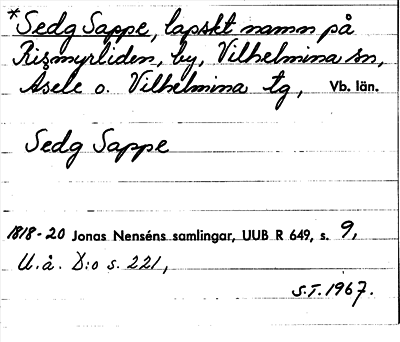 *Sedg Sappe, lapskt namn på
Rismyrliden, by, Vilhelmina sn,
Åsele o. Vilhelmina tg, Vb. län.
Sedg Sappe
1818-20 Jonas Nenséns samlingar, UUB R 649, s. 9,
U.å. D:o s. 221,
S.T. 1967.